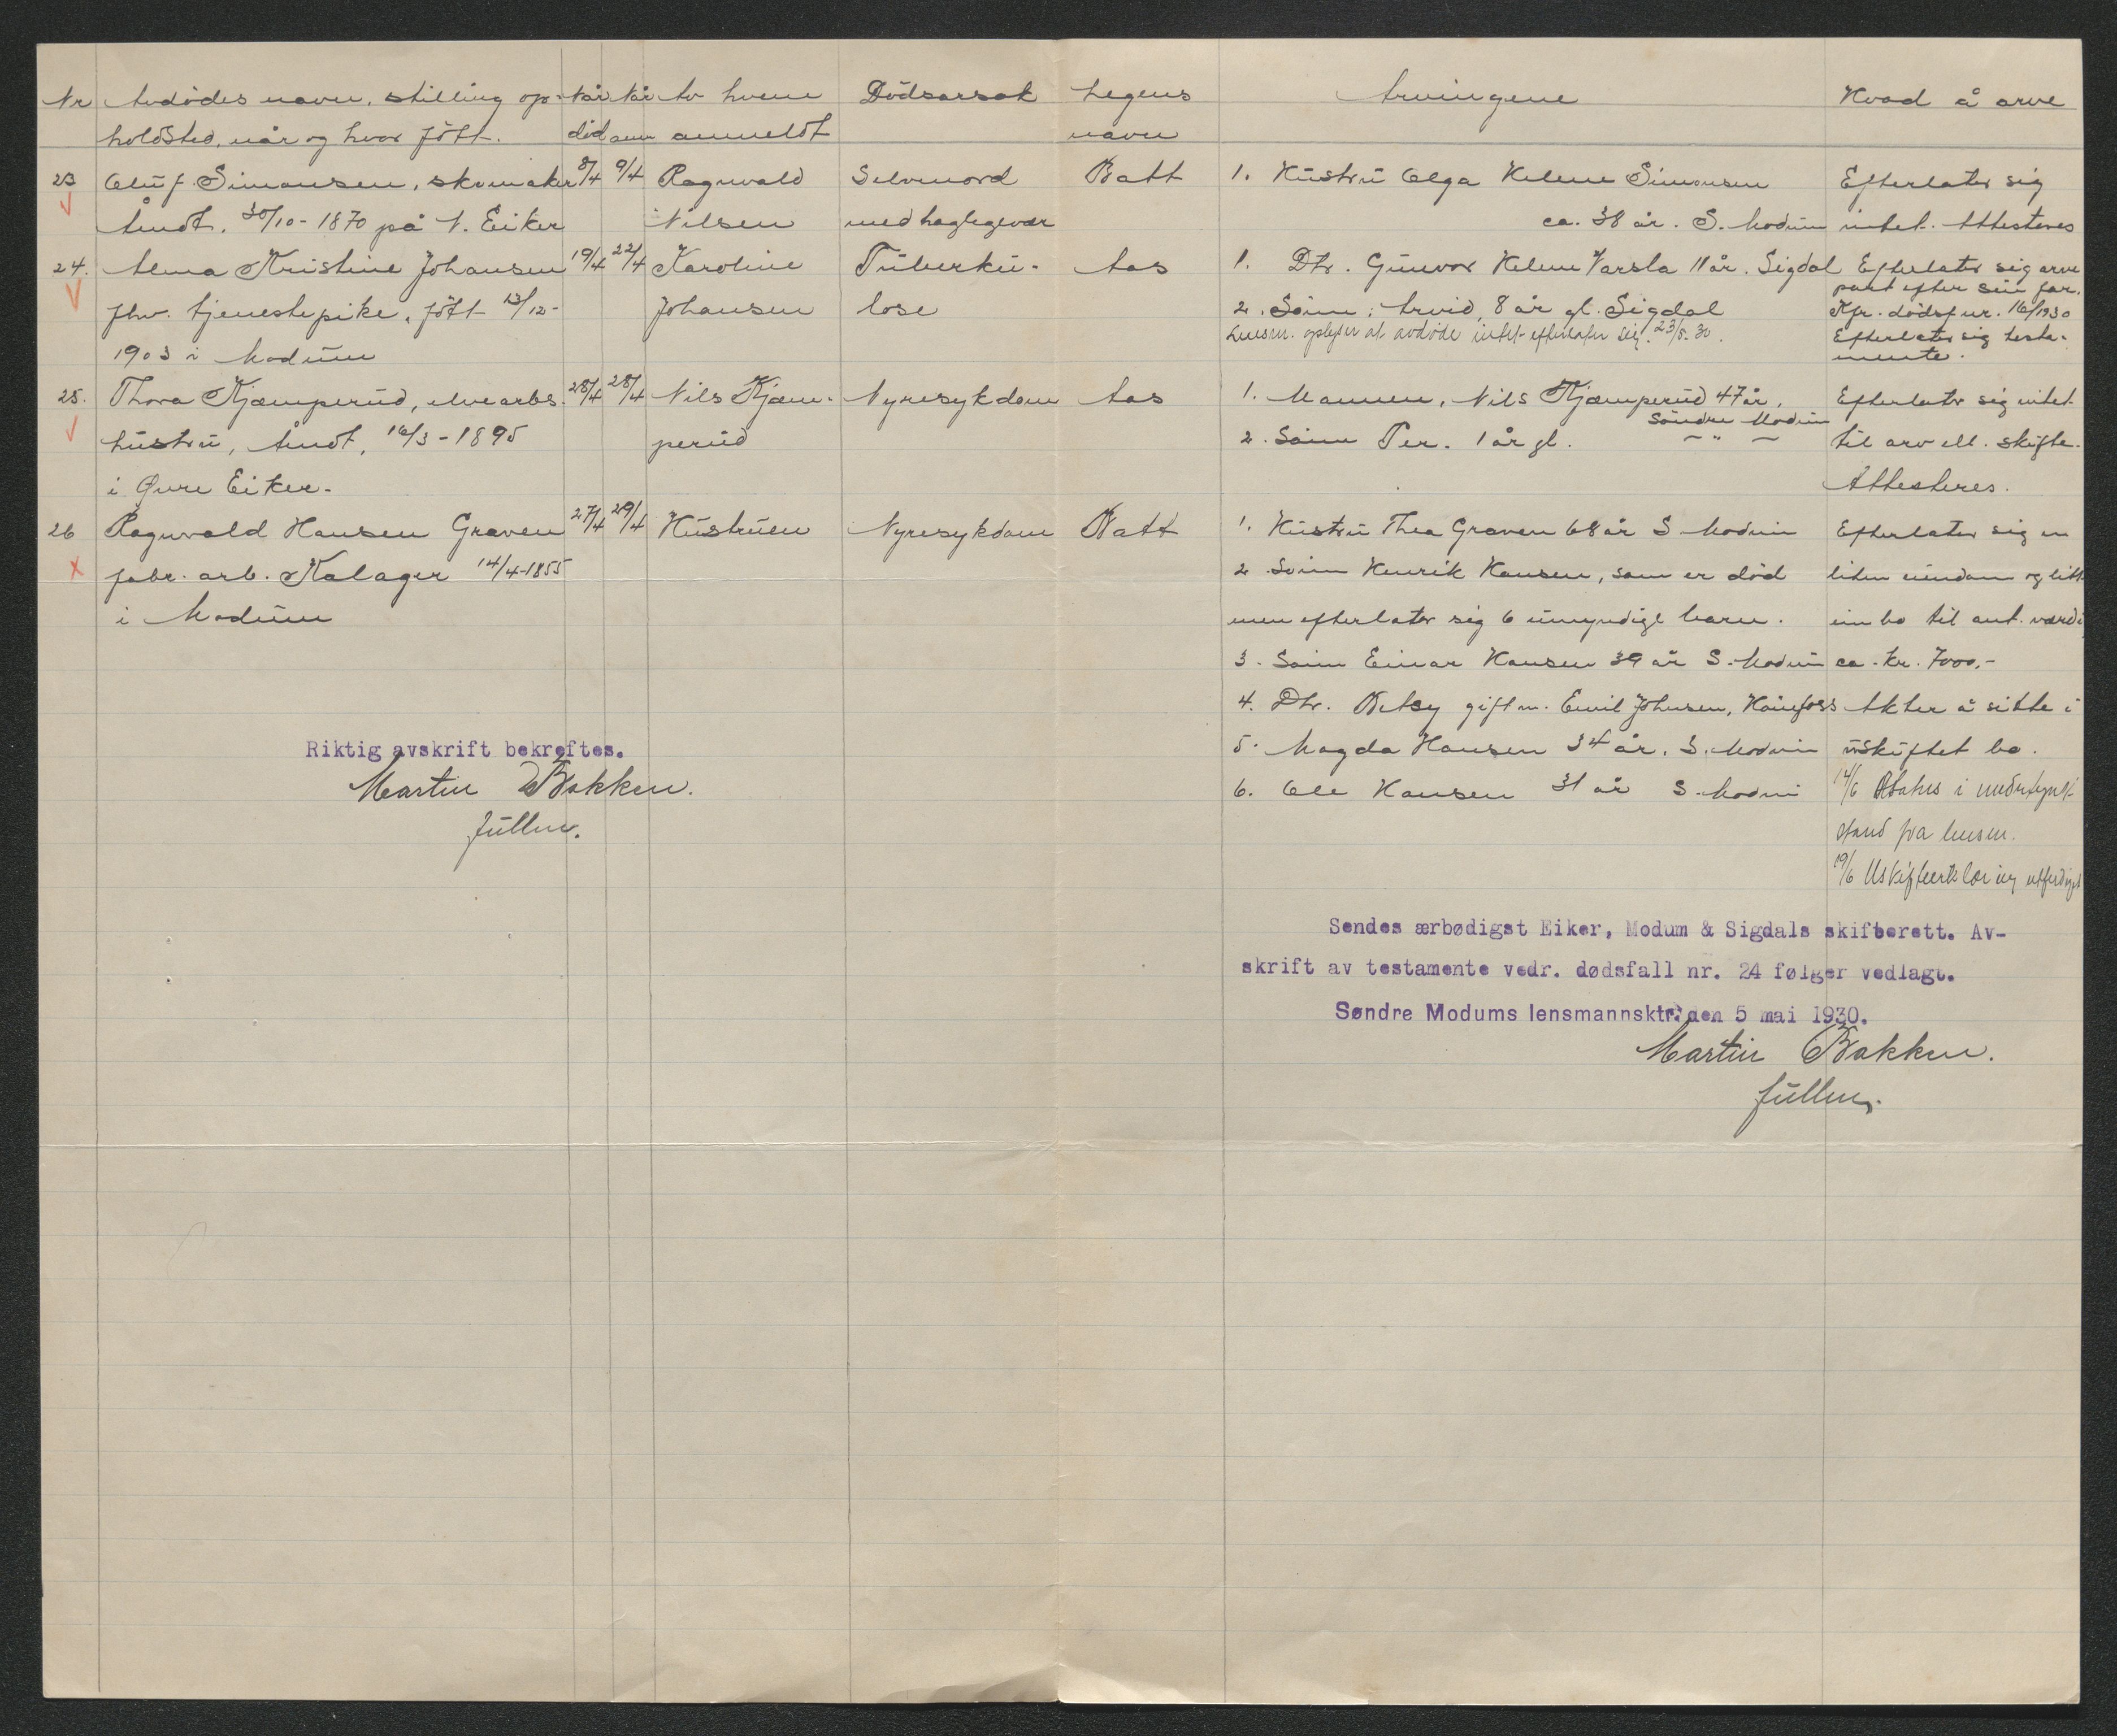 Nr Avdødes navn, stilling op- Når Når Av hvem Dödsarsak Legens Arvingene Hvad å arve
holdsted, når og hvor fött. död anm anmeldt navn
23 Oluf Simonsen, skomaker 8/4 9/4 Ragnvald Selvmord Batt 1. Hustru Olga Helene Simonsen Efterlater sig
Åmot. 30/10-1870 på N. Eiker Nilsen med haglegevær ca. 38 år. S. Modum intet. Attesteres
24. Alma Kristine Johansen 19/4 22/4 Karoline Tuberku- Aas 1. Dtr. Gunvor Helene Varsla 11 år. Sigdal Efterlater sig arve
part efter sin far.
fhv. tjenestepike, fött 13/12- Johansen lose 2. Sönn: Arvid, 8 år gl. Sigdal Kfr. dödsf nr. 16/1930
Lensm. oplyser at avdöde intet efterlater sig. 23/5.30. Efterlater sig testa-
1903 i Modum mente.
25. Thora Kjæmperud, elvearbs. 28/4 28/4 Nils Kjæm- Nyresykdom Aas 1. Mannen, Nils Kjæmperud 47 år, Efterlater sig intet
Söndre Modum
hustru, Åmot, 16/3-1895 perud 2. Sönn Per. 1 år gl. — " — til arv ell. skifte.
i Øvre Eiker. Attesteres.
26 Ragnvald Hansen Graven 27/4 29/4 Hustruen Nyresykdom Batt 1. Hustru Thea Graven 68 år S Modum Efterlater sig en
fabr. arb. Kalager 14/4-1855 2. Sönn Henrik Hansen, som er död liten eiendom og litt
i Modum men efterlater sig 6 umyndige barn. innbo til ant. verdi
3. Sönn Einar Hansen 39 år S. Modum ca. kr. 7000.-
4. Dtr. Betsy gift m. Emil Johnsen, Hönefoss Akter å sitte i
5. Magda Hansen 34 år. S. Modum uskiftet bo.
6. Ole Hansen 31 år S. Modum 14/6 Attest i
stand fra lensm.
19/6 Uskifteerklæring utferdiget
Riktig avskrift bekreftes.
Martin Bakken.
fullm.
Sendes ærbødigst Eiker, Modum & Sigdals skifterett. Av-
skrift av testamente vedr. dødsfall nr. 24 følger vedlagt.
Søndre Modums lensmannsktr. den 5 mai 1930.
Martin Bakken.
fullm.